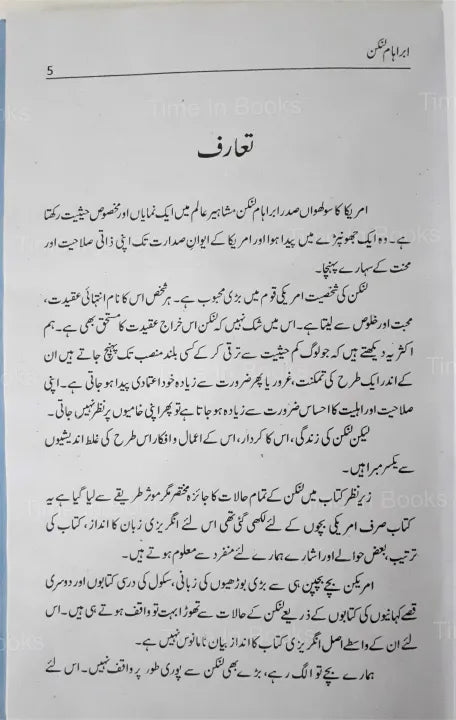 ابراہام لنکن
5
تعارف
امریکا کا سولھواں صدر ابراہام لنکن مشاہیر عالم میں ایک نمایاں اور مخصوص حیثیت رکھتا
ہے۔ وہ ایک جھونپڑے میں پیدا ہوا اور امریکا کے ایوانِ صدارت تک اپنی ذاتی صلاحیت اور
محنت کے سہارے پہنچا۔
لنکن کی شخصیت امریکی قوم میں بڑی محبوب ہے۔ ہر شخص اس کا نام انتہائی عقیدت،
محبت اور خلوص سے لیتا ہے۔ اس میں شک نہیں کہ لنکن اس خراجِ عقیدت کا مستحق بھی ہے۔ ہم
اکثر یہ دیکھتے ہیں کہ جو لوگ کم حیثیت سے ترقی کر کے کسی بلند منصب تک پہنچ جاتے ہیں ان
کے اندر ایک طرح کی تمکنت، غرور یا پھر ضرورت سے زیادہ خود اعتمادی پیدا ہو جاتی ہے۔ اپنی
صلاحیت اور اہلیت کا احساس ضرورت سے زیادہ ہو جاتا ہے تو پھر اپنی خامیوں پر نظر نہیں جاتی۔
لیکن لنکن کی زندگی، اس کا کردار، اس کے اعمال و افکار اس طرح کی غلط اندیشیوں
سے یکسر مبرا ہیں۔
زیر نظر کتاب میں لنکن کے تمام حالات کا جائزہ مختصر مگر موثر طریقے سے لیا گیا ہے یہ
کتاب صرف امریکی بچوں کے لئے لکھی گئی تھی اس لئے انگریزی زبان کا انداز، کتاب کی
ترتیب، بعض حوالے اور اشارے ہمارے لئے منفرد سے معلوم ہوتے ہیں۔
امریکن بچے بچپن ہی سے بڑی بوڑھیوں کی زبانی، سکول کی درسی کتابوں اور دوسری
قصے کہانیوں کی کتابوں کے ذریعے لنکن کے حالات سے تھوڑا بہت تو واقف ہوتے ہی ہیں۔ اس
لئے ان کے واسطے اصل انگریزی کتاب کا انداز بیان نامانوس نہیں ہے۔
ہمارے بچے تو الگ رہے، بڑے بھی لنکن سے پوری طور پر واقف نہیں۔ اس لئے
Time In Books